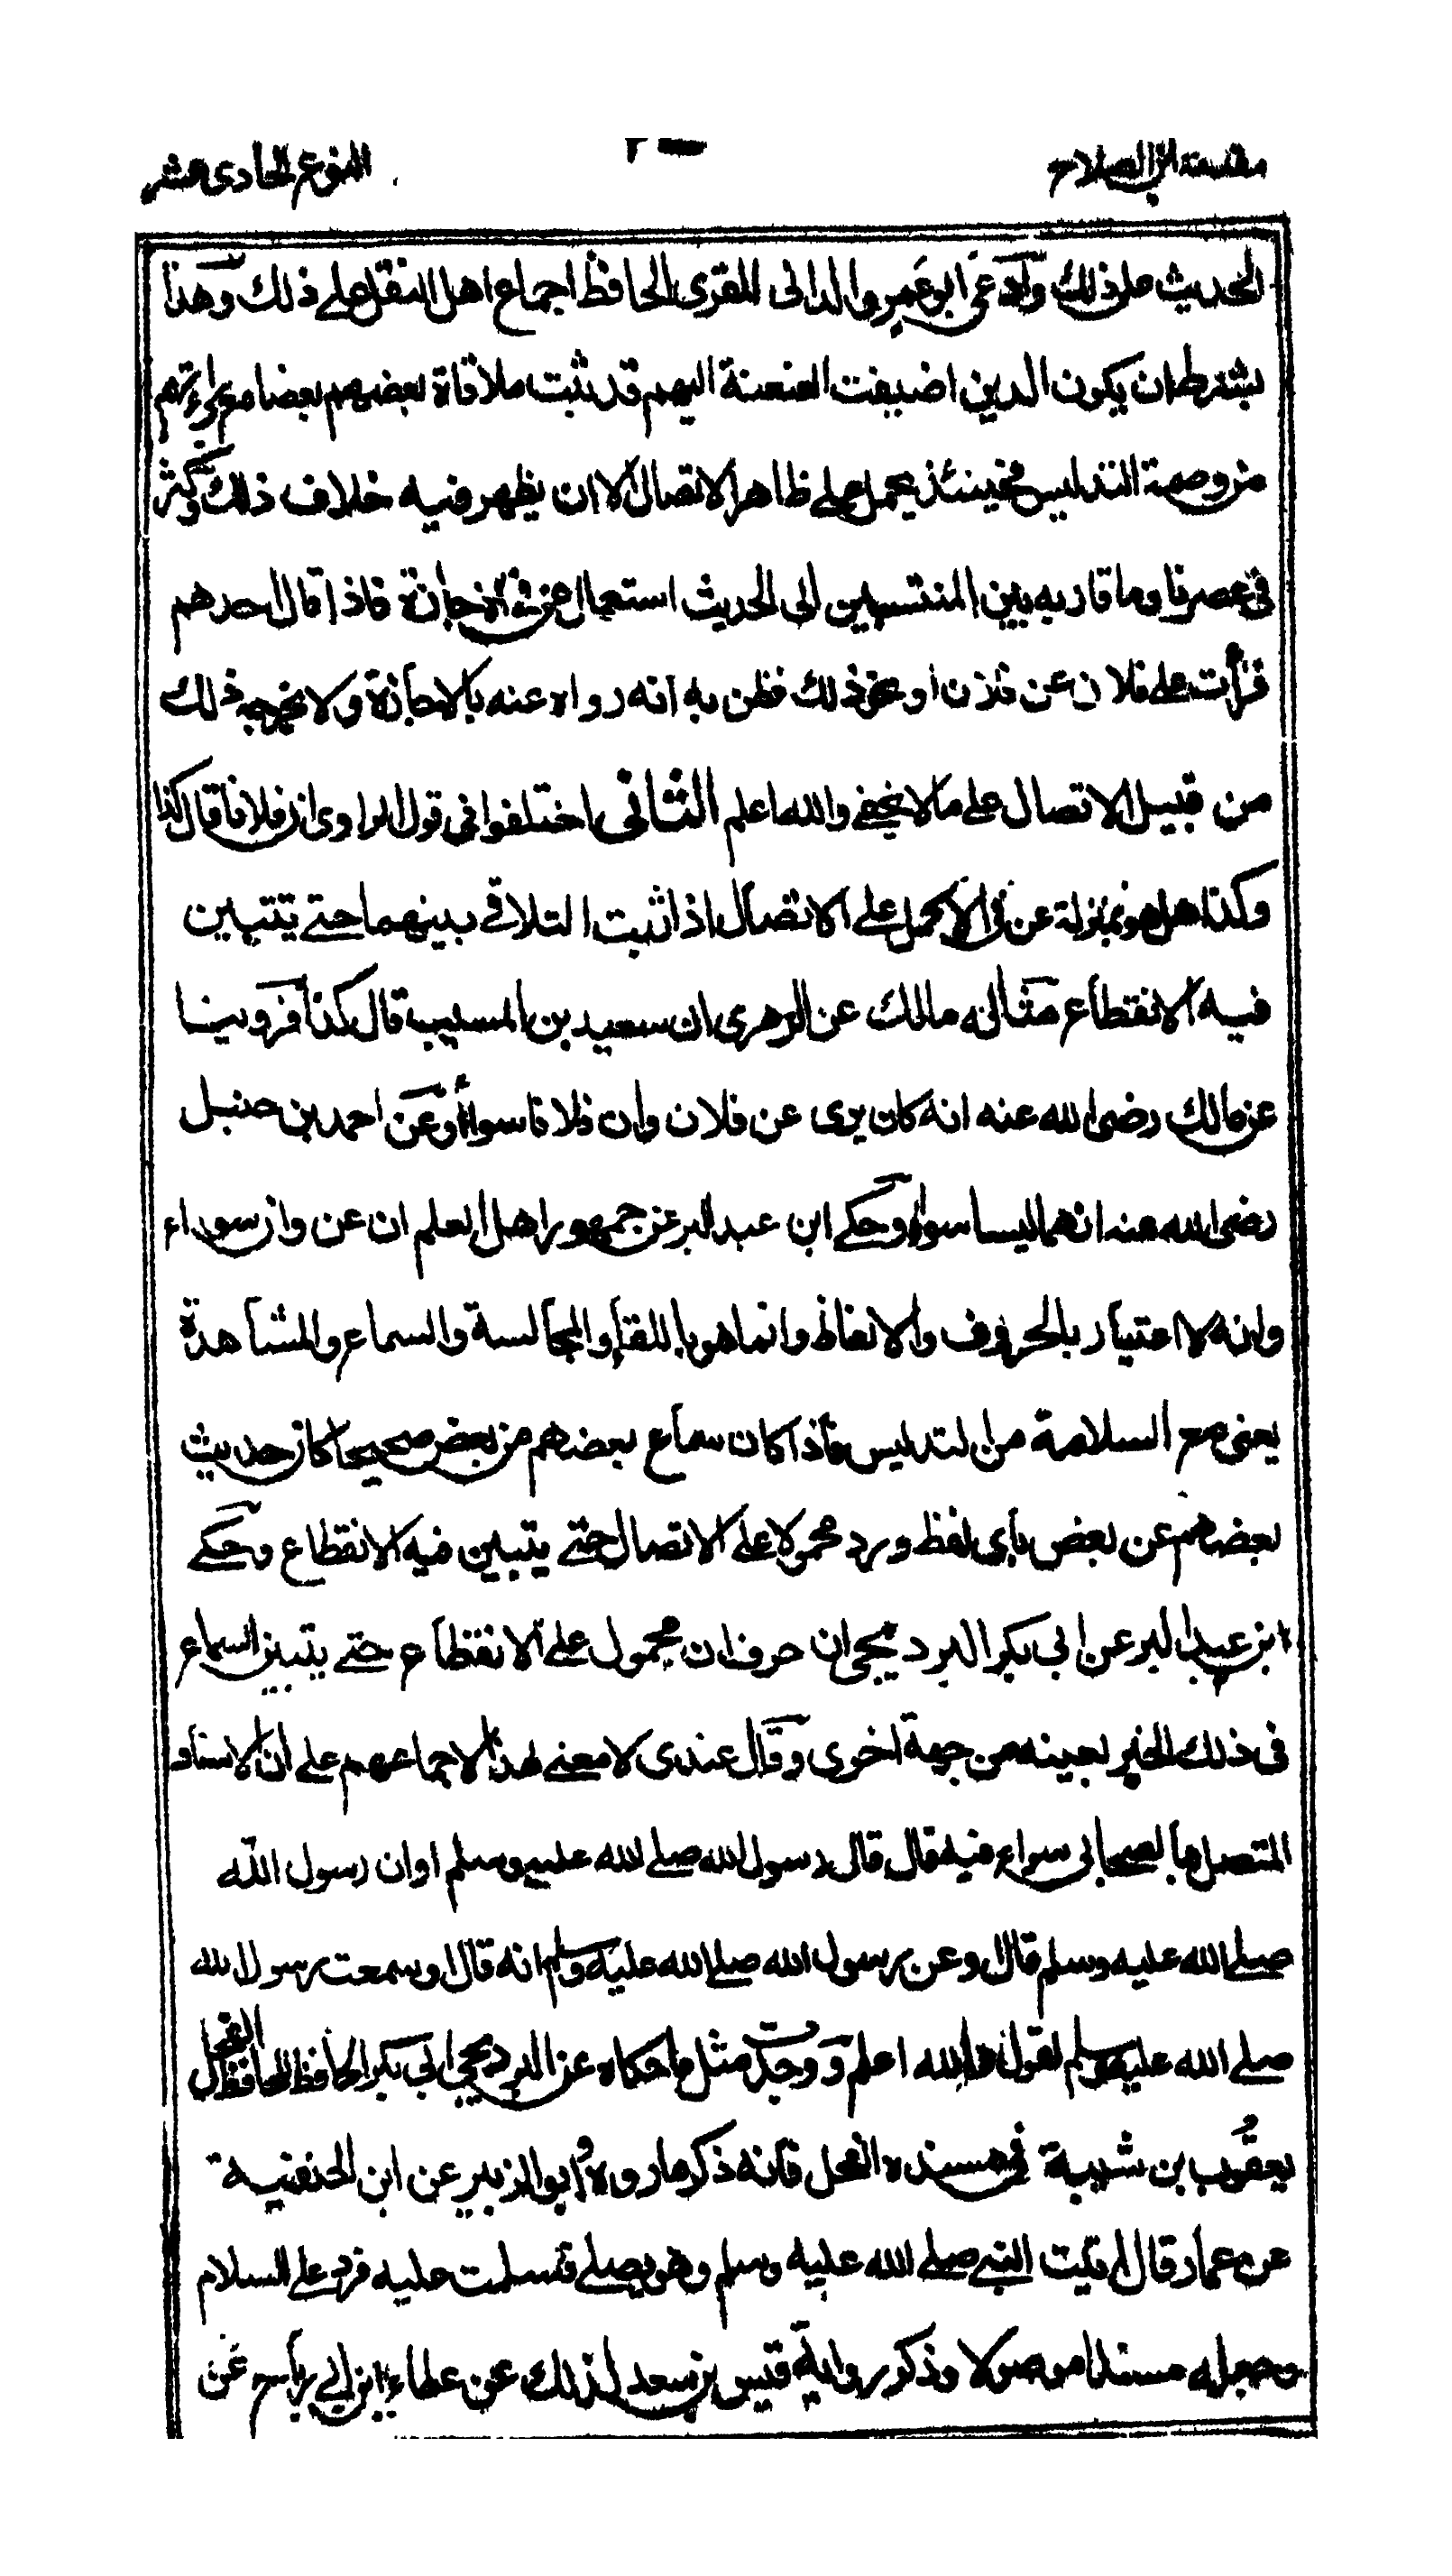 مقدمة ابن الصلاح
النوع الحادي عشر
الحديث على ذلك وادعى ابو عمرو الداني المقرى الحافظ اجماع اهل النقل على ذلك وهذا
بشرط ان يكون الذين اضيفت العنعنة اليهم قد ثبت ملاقاة بعضهم بعضا مع براءتهم
من وصمة التدليس فحينئذ يحمل على ظاهر الاتصال الا ان يظهر فيه خلاف ذلك وكثر
في عصرنا وما قاربه بين المنتسبين الى الحديث استعمال عن في الاجازة فاذا قال احدهم
قرأت على فلان عن فلان او نحو ذلك فظن به انه رواه عنه بالاجازة ولا يخرجه ذلك
من قبيل الاتصال على ما لا يخفى والله اعلم الثاني اختلفوا في قول الراوى ان فلانا قال كذا
وكذا هل هو بمنزلة عن في الحمل على الاتصال اذا ثبت التلاقي بينهما حتى يتبين
فيه الانقطاع مثاله مالك عن الزهرى ان سعيد بن المسيب قال كذا فروينا
عن مالك رضى الله عنه انه كان يرى عن فلان وان فلانا سواء وعن احمد بن حنبل
رضى الله عنه انهما ليسا سواء وحكى ابن عبد البر عن جمهور اهل العلم ان عن وان سواء
وانه لا اعتبار بالحروف والالفاظ وانما هو باللقاء والمجالسة والسماع والمشاهدة
يعنى مع السلامة من التدليس فاذا كان سماع بعضهم من بعض صحيحا كان حديث
بعضهم عن بعض باى لفظ ورد محمولا على الاتصال حتى يتبين فيه الانقطاع وحكى
ابن عبد البر عن ابى بكر البرديجى ان حرف ان محمول على الانقطاع حتى يتبين السماع
في ذلك الخبر بعينه من جهة اخرى وقال عندى لا معنى لهذا لاجماعهم على ان الاسناد
المتصل بالصحابى سواء فيه قال قال رسول الله صلى الله عليه وسلم او ان رسول الله
صلى الله عليه وسلم قال او عن رسول الله صلى الله عليه وسلم انه قال او سمعت رسول الله
صلى الله عليه وسلم يقول والله اعلم ووجدت مثل ما حكاه عن البرديجى ابى بكر الحافظ للحافظ الفحل
يعقوب بن شيبة في مسنده الفحل فانه ذكر ما رواه ابو الزبير عن ابن الحنفية
عن عمار قال اتيت النبى صلى الله عليه وسلم وهو يصلى فسلمت عليه فرد على السلام
وجعله مسندا موصولا وذكر رواية قيس بن سعد لذلك عن عطاء ابن ابى رباح عن